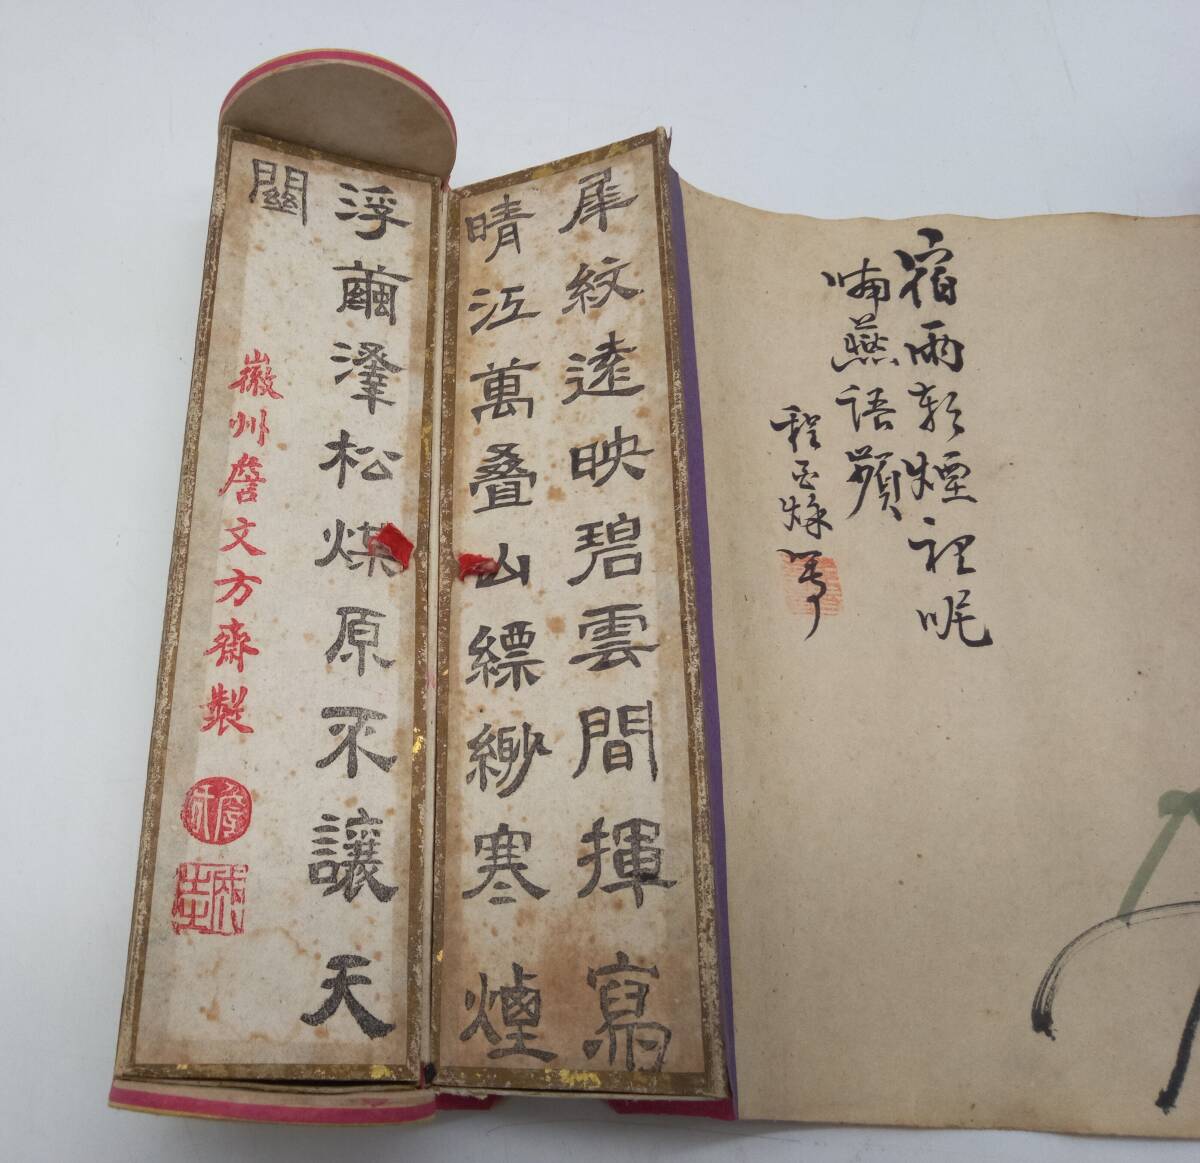 宿雨煙裡呢
喃燕語頻
程
犀紋遠映碧雲間揮寫
晴江萬叠山縹緲寒煙
浮繭松煤原不讓天
關
徽州詹文方齋製